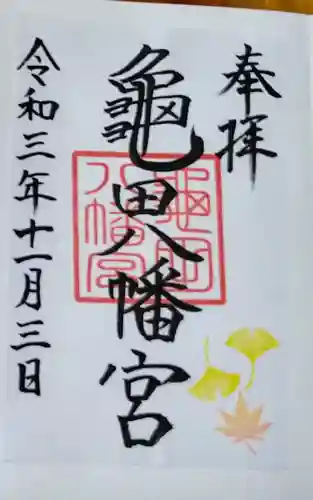 奉拝
亀田八幡宮
亀田
八幡宮
令和三年十一月三日